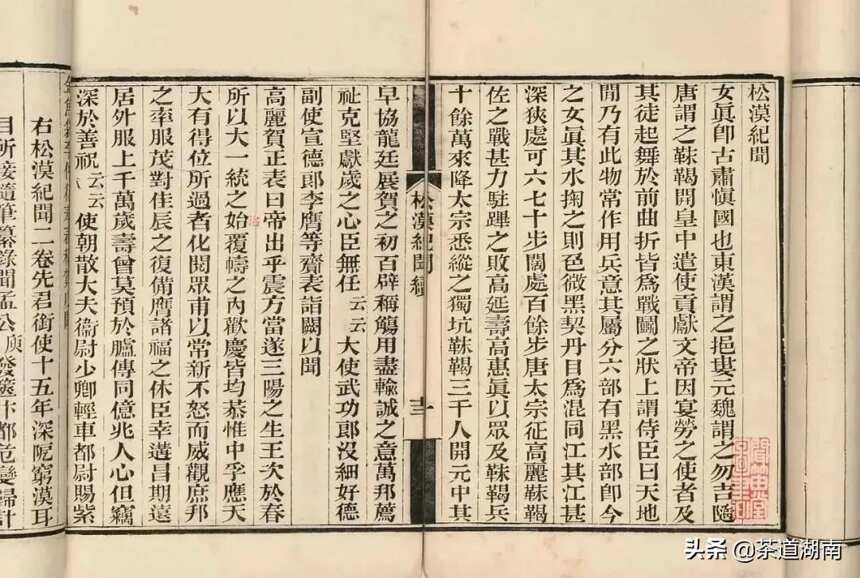 松漠紀聞
女眞卽古肅愼國也東漢謂之挹婁元魏謂之勿吉隨
唐謂之靺鞨開皇中遣使貢獻文帝因宴勞之使者及
其徒起舞於前曲折皆爲戰鬭之狀上謂侍臣曰天地
閒乃有此物常作用兵意其屬分六部有黑水部卽今
之女眞其水掬之則色微黑契丹目爲混同江其江甚
深狹處可六七十步闊處百餘步唐太宗征高麗靺鞨
佐之戰甚力駐蹕之敗高延壽高惠眞以眾及靺鞨兵
十餘萬來降太宗悉縱之獨坑靺鞨三千人開元中其
松漠紀聞
早協龍廷展賀之初百辟稱觴用盡輸誠之意萬邦薦
祉克堅獻歲之心臣無任云云大使武功郎沒細好德
副使宣德郎李膺等齎表詣闕以聞
高麗賀正表曰帝出乎震方當遂三陽之生王次於春
所以大一統之始覆幬之內歡慶皆均恭惟中孚應天
大有得位所過者化閱眾甫以常新不怒而威觀庶邦
之率服茂對佳辰之復備膺諸福之休臣幸遘昌期遠
居外服上千萬歲壽曾莫預於臚傳同億兆人心但竊
深於善祝云云使朝散大夫衞尉少卿輕車都尉賜紫
右松漠紀聞二卷先君銜使十五年深阨窮漠耳
目所接隨筆纂錄聞孟公庾發篋汴都危變歸計
头条 @茶道湖南